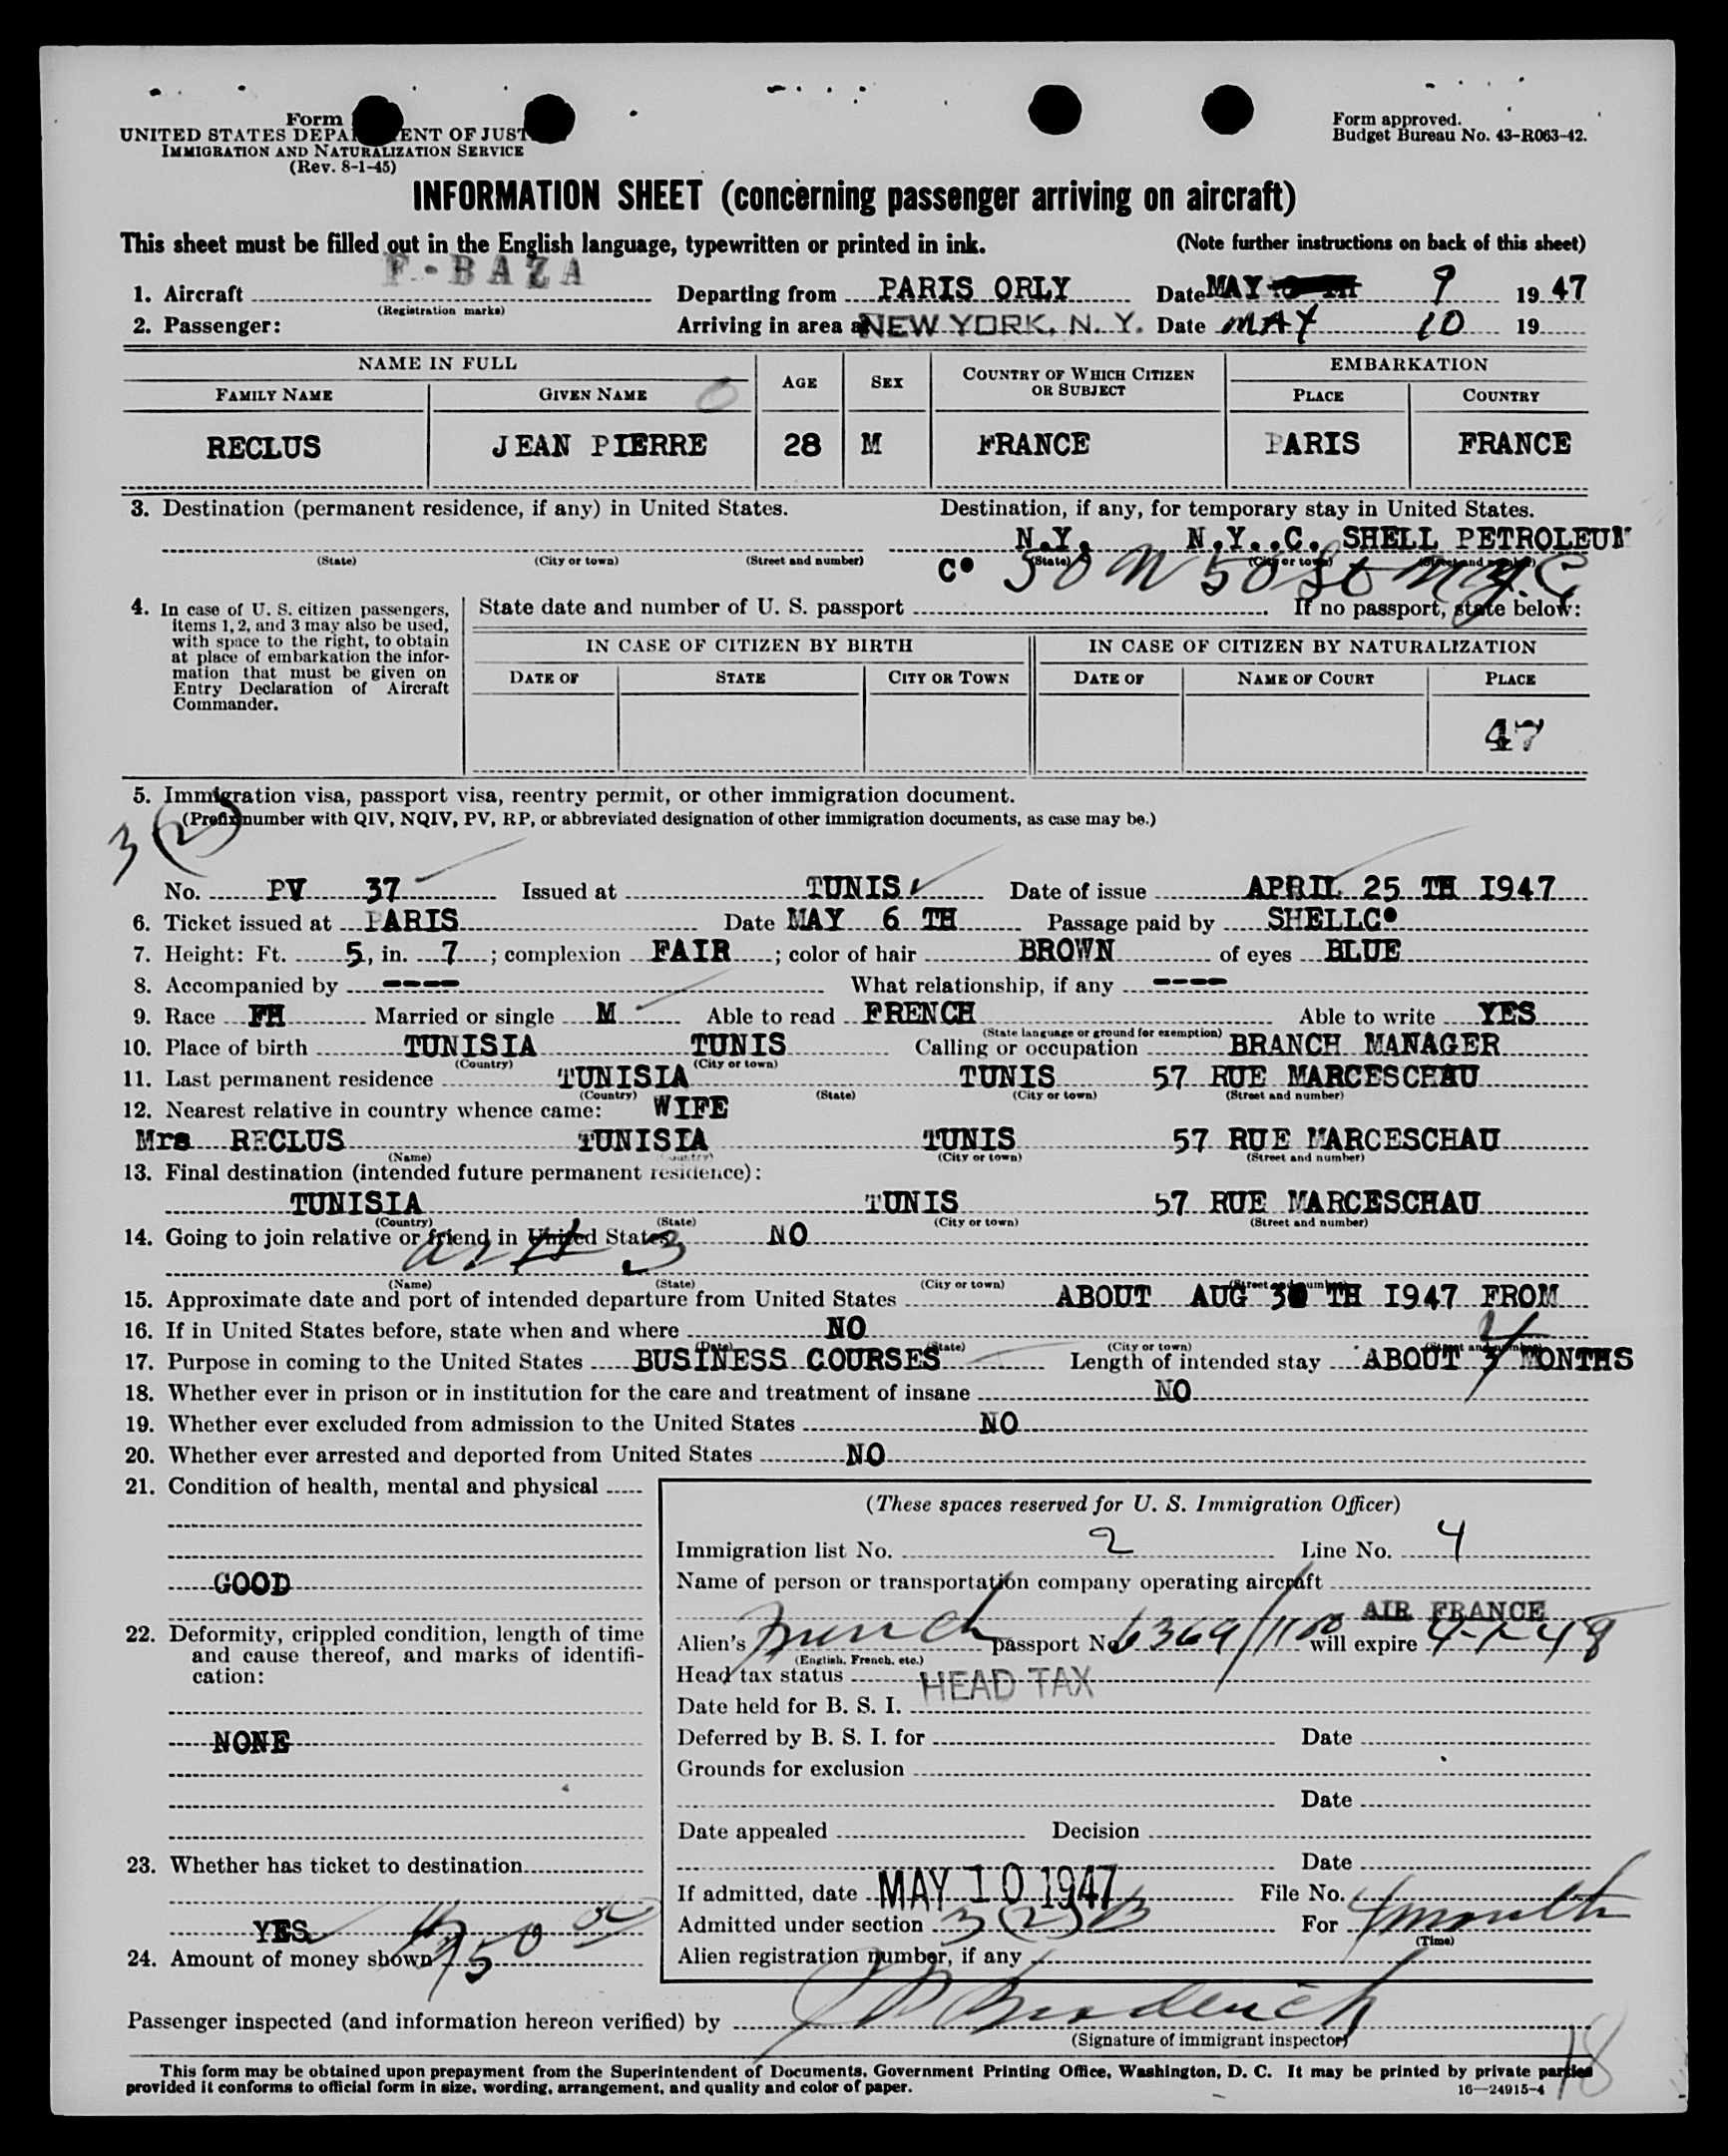 Form
UNITED STATES DEPA ENT OF JUST
IMMIGRATION AND NATURALIZATION SERVICE
(Rev. 8-1-45)
Form approved.
Budget Bureau No. 43-R063-42.
INFORMATION SHEET (concerning passenger arriving on aircraft)
This sheet must be filled out in the English language, typewritten or printed in ink. (Note further instructions on back of this sheet)
1. Aircraft F-BAZA Departing from PARIS ORLY Date MAY 9 19 47
(Registration marks)
2. Passenger: Arriving in area at NEW YORK, N. Y. Date MAY 10 19
NAME IN FULL AGE SEX COUNTRY OF WHICH CITIZEN OR SUBJECT EMBARKATION
FAMILY NAME GIVEN NAME PLACE COUNTRY
RECLUS JEAN PIERRE 28 M FRANCE PARIS FRANCE
3. Destination (permanent residence, if any) in United States. Destination, if any, for temporary stay in United States.
N.Y. N.Y..C. SHELL PETROLEUM
(State) (City or town) (Street and number) (State) (City or town) (Street and number)
C° 50 W 50 St N.Y.C
4. In case of U. S. citizen passengers, items 1, 2, and 3 may also be used, with space to the right, to obtain at place of embarkation the information that must be given on Entry Declaration of Aircraft Commander.
State date and number of U. S. passport If no passport, state below:
IN CASE OF CITIZEN BY BIRTH IN CASE OF CITIZEN BY NATURALIZATION
DATE OF STATE CITY OR TOWN DATE OF NAME OF COURT PLACE
47
5. Immigration visa, passport visa, reentry permit, or other immigration document.
3 (2) (Prefix number with QIV, NQIV, PV, RP, or abbreviated designation of other immigration documents, as case may be.)
No. PV 37 Issued at TUNIS Date of issue APRIL 25 TH I947
6. Ticket issued at PARIS Date MAY 6 TH Passage paid by SHELLC°
7. Height: Ft. 5, in. 7; complexion FAIR; color of hair BROWN of eyes BLUE
8. Accompanied by ---- What relationship, if any ----
9. Race FH Married or single M Able to read FRENCH Able to write YES
(State language or ground for exemption)
10. Place of birth TUNISIA TUNIS Calling or occupation BRANCH MANAGER
(Country) (City or town)
11. Last permanent residence TUNISIA TUNIS 57 RUE MARCESCHAU
(Country) (State) (City or town) (Street and number)
12. Nearest relative in country whence came: WIFE
Mrs RECLUS TUNISIA TUNIS 57 RUE MARCESCHAU
(Name) (Country) (City or town) (Street and number)
13. Final destination (intended future permanent residence):
TUNISIA TUNIS 57 RUE MARCESCHAU
(Country) (State) (City or town) (Street and number)
14. Going to join relative or friend in United States NO
(Name) (State) (City or town) (Street and number)
15. Approximate date and port of intended departure from United States ABOUT AUG 30 TH I947 FROM
16. If in United States before, state when and where NO
(Date) (State) (City or town) (Street and number)
17. Purpose in coming to the United States BUSINESS COURSES Length of intended stay ABOUT 4 MONTHS
18. Whether ever in prison or in institution for the care and treatment of insane NO
19. Whether ever excluded from admission to the United States NO
20. Whether ever arrested and deported from United States NO
21. Condition of health, mental and physical
GOOD
22. Deformity, crippled condition, length of time and cause thereof, and marks of identification:
NONE
23. Whether has ticket to destination
YES
24. Amount of money shown $750 00
(These spaces reserved for U. S. Immigration Officer)
Immigration list No. 2 Line No. 4
Name of person or transportation company operating aircraft
AIR FRANCE
Alien's French passport No 6369/1100 will expire 4-1-48
(English, French, etc.)
Head tax status HEAD TAX
Date held for B. S. I.
Deferred by B. S. I. for Date
Grounds for exclusion
Date
Date appealed Decision
Date
If admitted, date MAY 10 1947 File No.
Admitted under section 3 (2) B For 4 months
(Time)
Alien registration number, if any
Passenger inspected (and information hereon verified) by
(Signature of immigrant inspector)
This form may be obtained upon prepayment from the Superintendent of Documents, Government Printing Office, Washington, D. C. It may be printed by private parties
provided it conforms to official form in size, wording, arrangement, and quality and color of paper. 16—24915-4
18